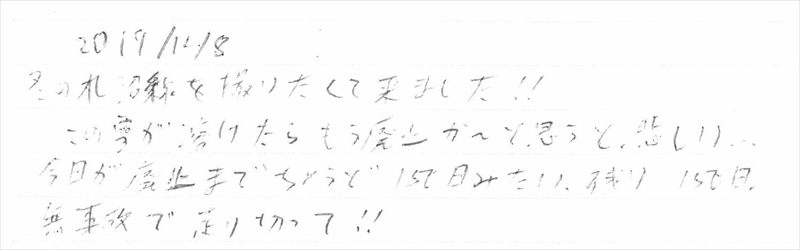 2019/12/8
冬の札沼線を撮りたくて来ました!!
この雪が溶けたらもう廃止か〜と思うと、悲しい...
今日が廃止までちょうど150日みたい、残り150日、
無事故で走り切って!!